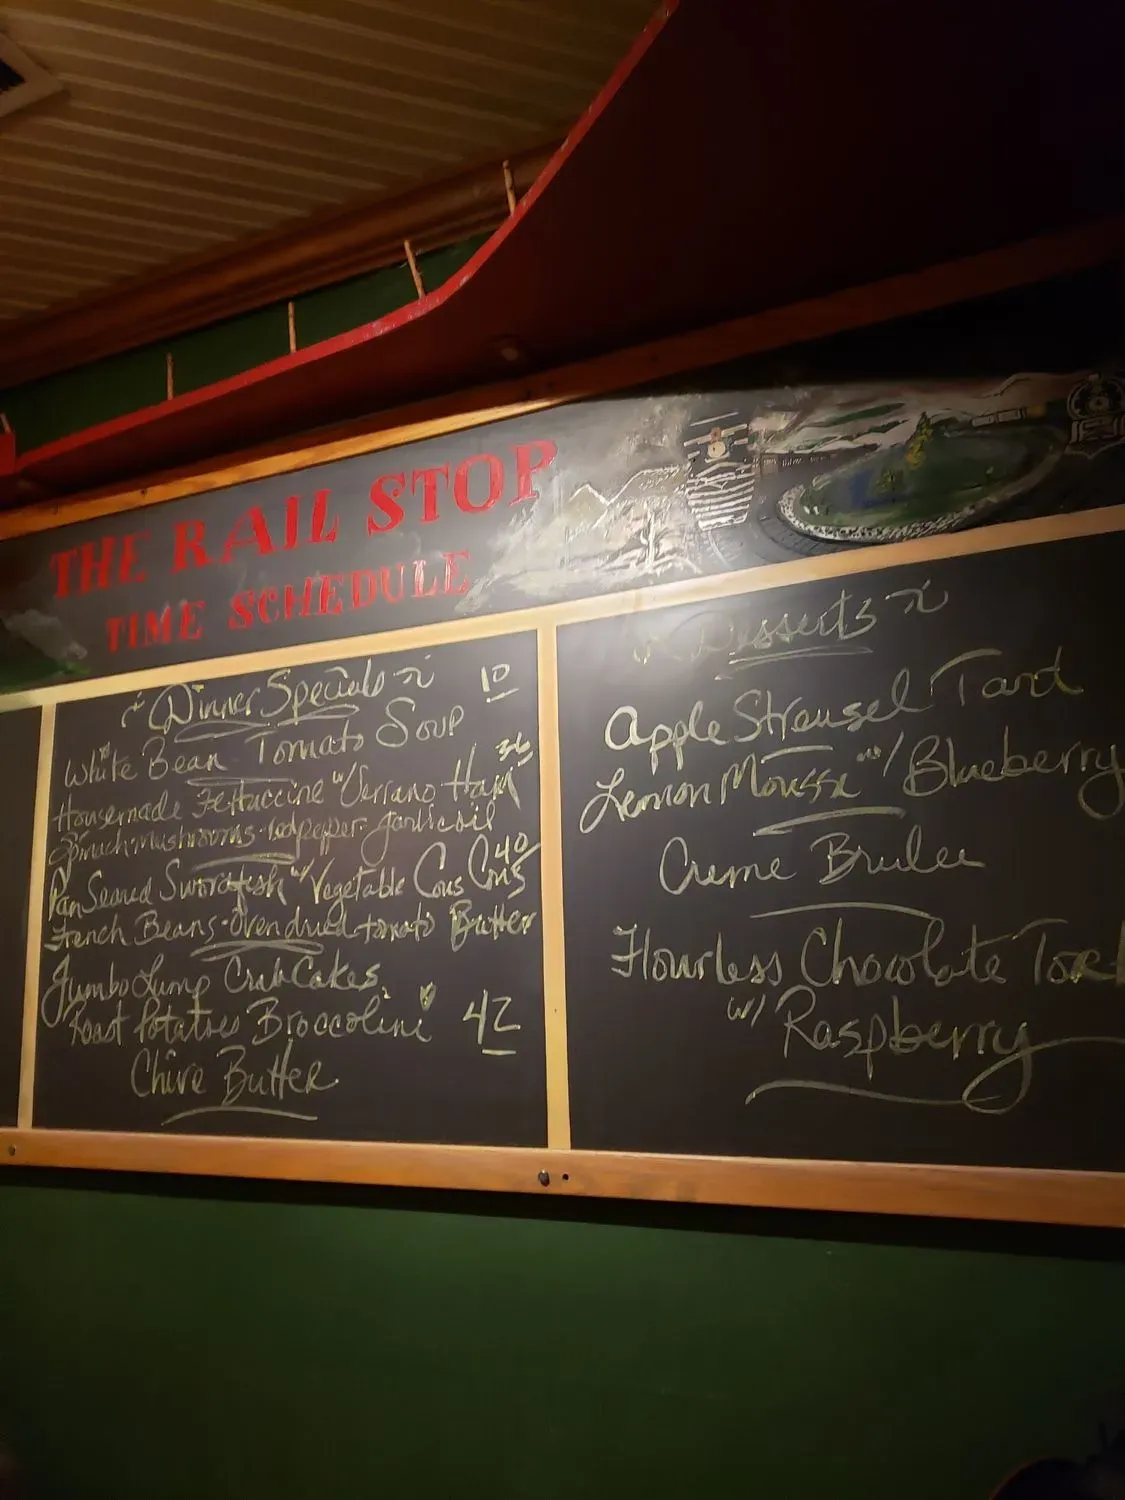 THE RAIL STOP
TIME SCHEDULE
~ Dinner Specials ~
10
White Bean Tomato Soup
36
Housemade Fettuccine w/ Serrano Ham
Spinach-mushrooms-red pepper-garlic oil
40
Pan Seared Swordfish w/ Vegetable Cous Cous
French Beans-Oven dried tomato Butter
Jumbo Lump Crab Cakes
Roast Potatoes Broccolini 42
Chive Butter
~ Desserts ~
Apple Streusel Tart
Lemon Mousse w/ Blueberry
Creme Brulee
Flourless Chocolate
w/ Raspberry